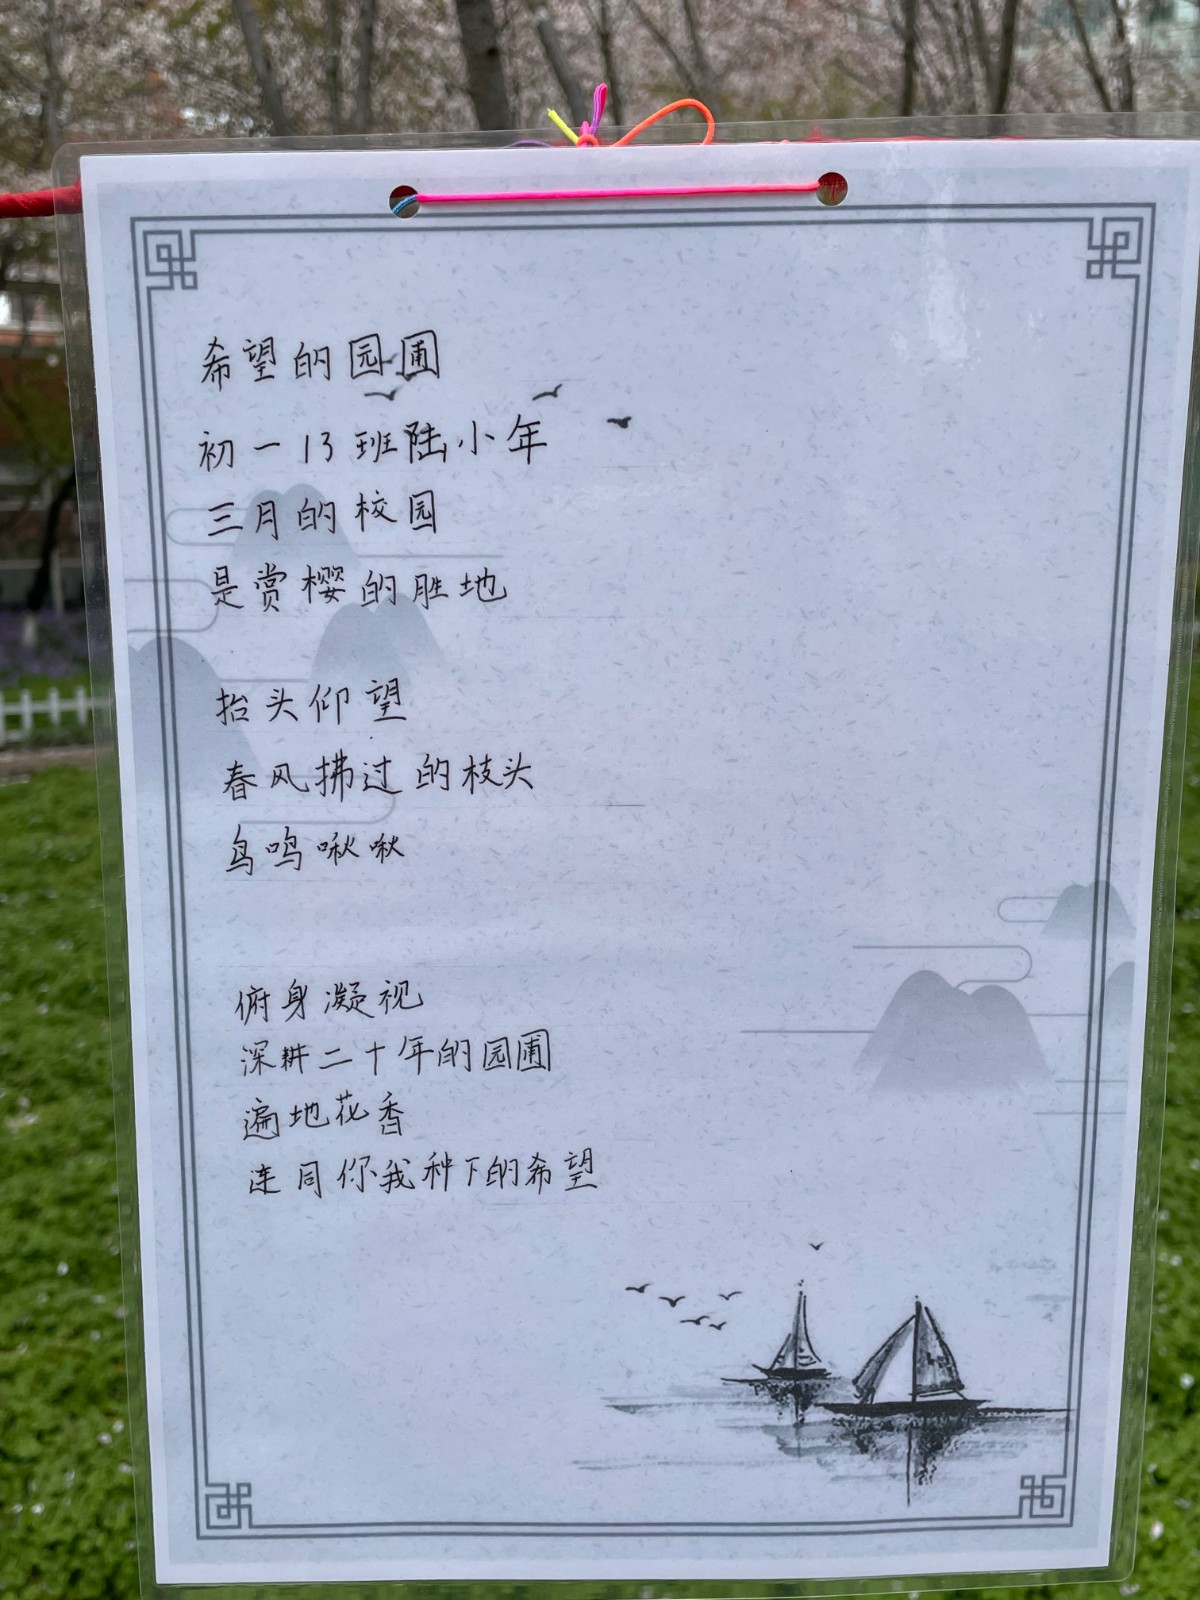 希望的园圃
初一13班陆小年
三月的校园
是赏樱的胜地
抬头仰望
春风拂过的枝头
鸟鸣啾啾
俯身凝视
深耕二十年的园圃
遍地花香
连同你我种下的希望